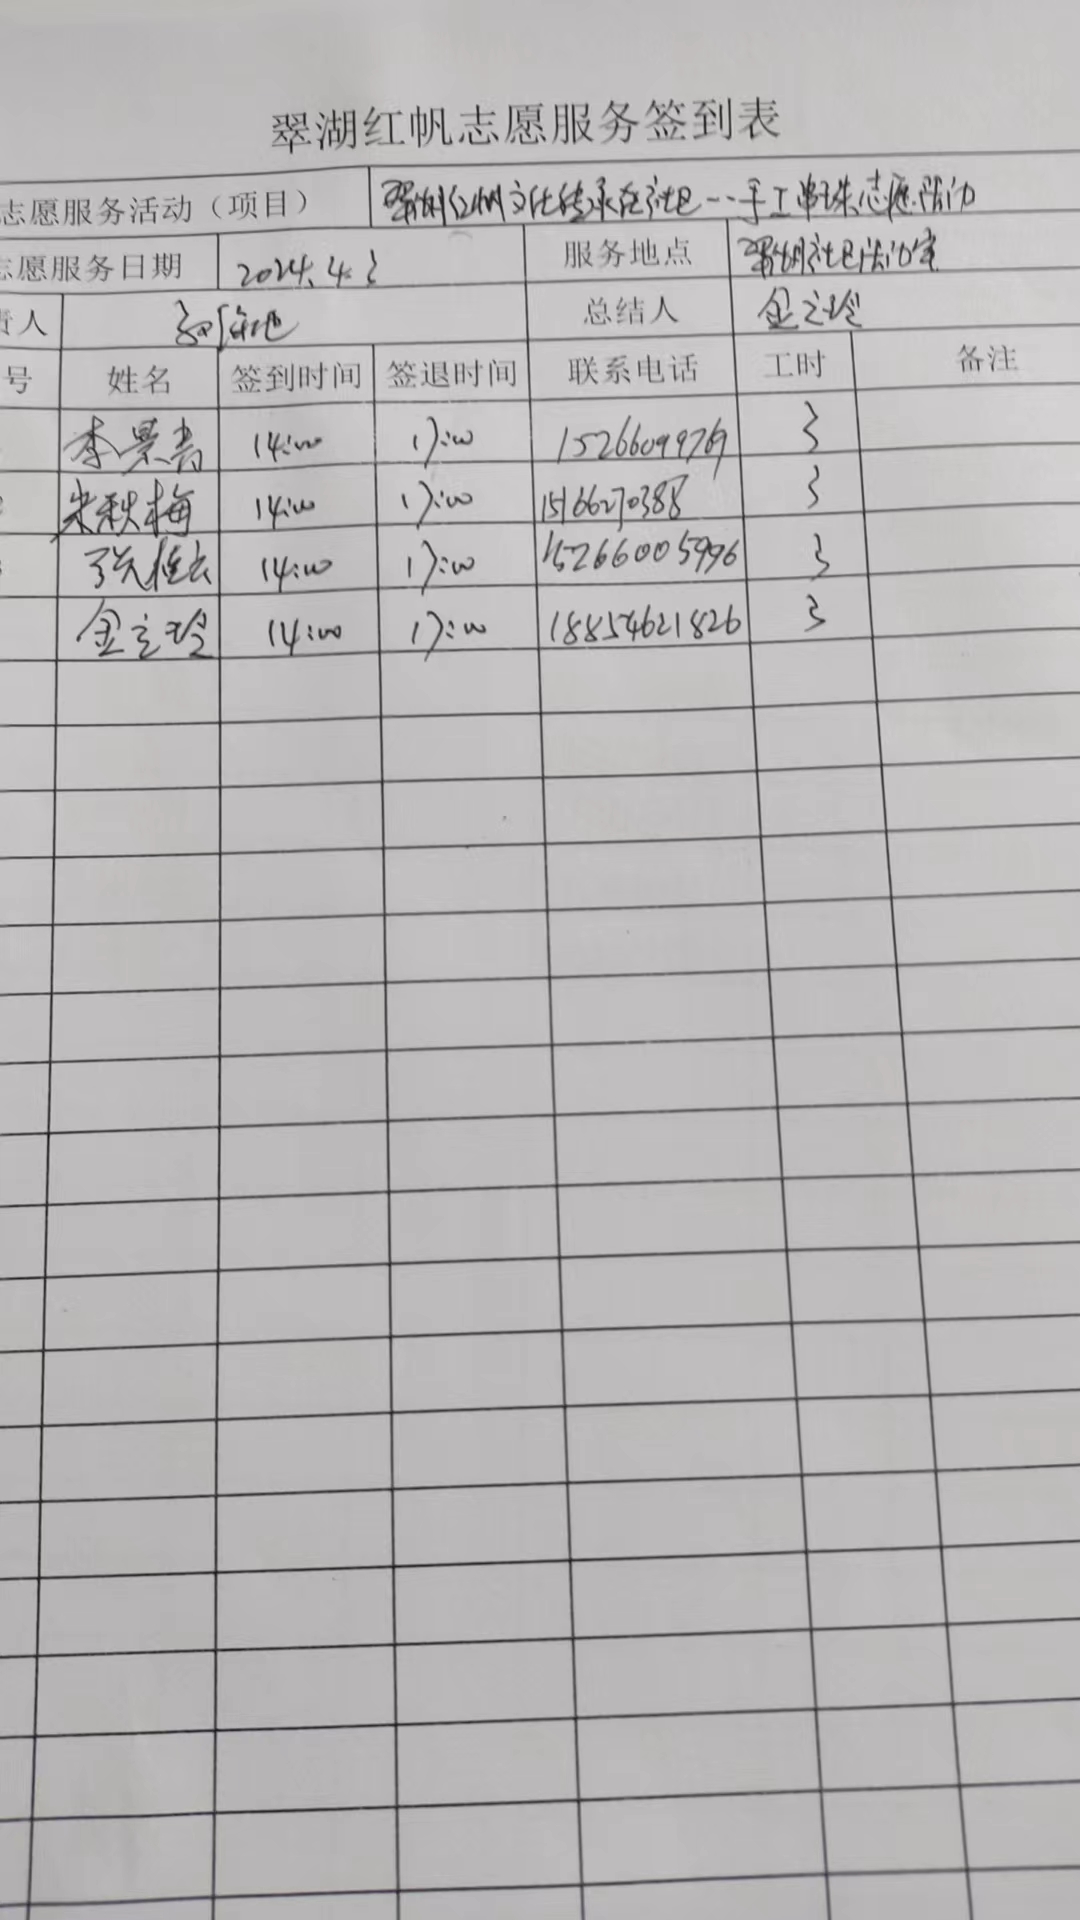 翠湖红帆志愿服务签到表
志愿服务活动（项目） 翠湖红帆文化传承在社区--手工串珠志愿活动
志愿服务日期 2024.4.3 服务地点 翠湖社区活动室
责人 总结人 金立玲
号 姓名 签到时间 签退时间 联系电话 工时 备注
李景青 14:00 17:00 15266099769 3
米秋梅 14:00 17:00 15166270388 3
张桂云 14:00 17:00 15266005996 3
金立玲 14:00 17:00 18854621826 3